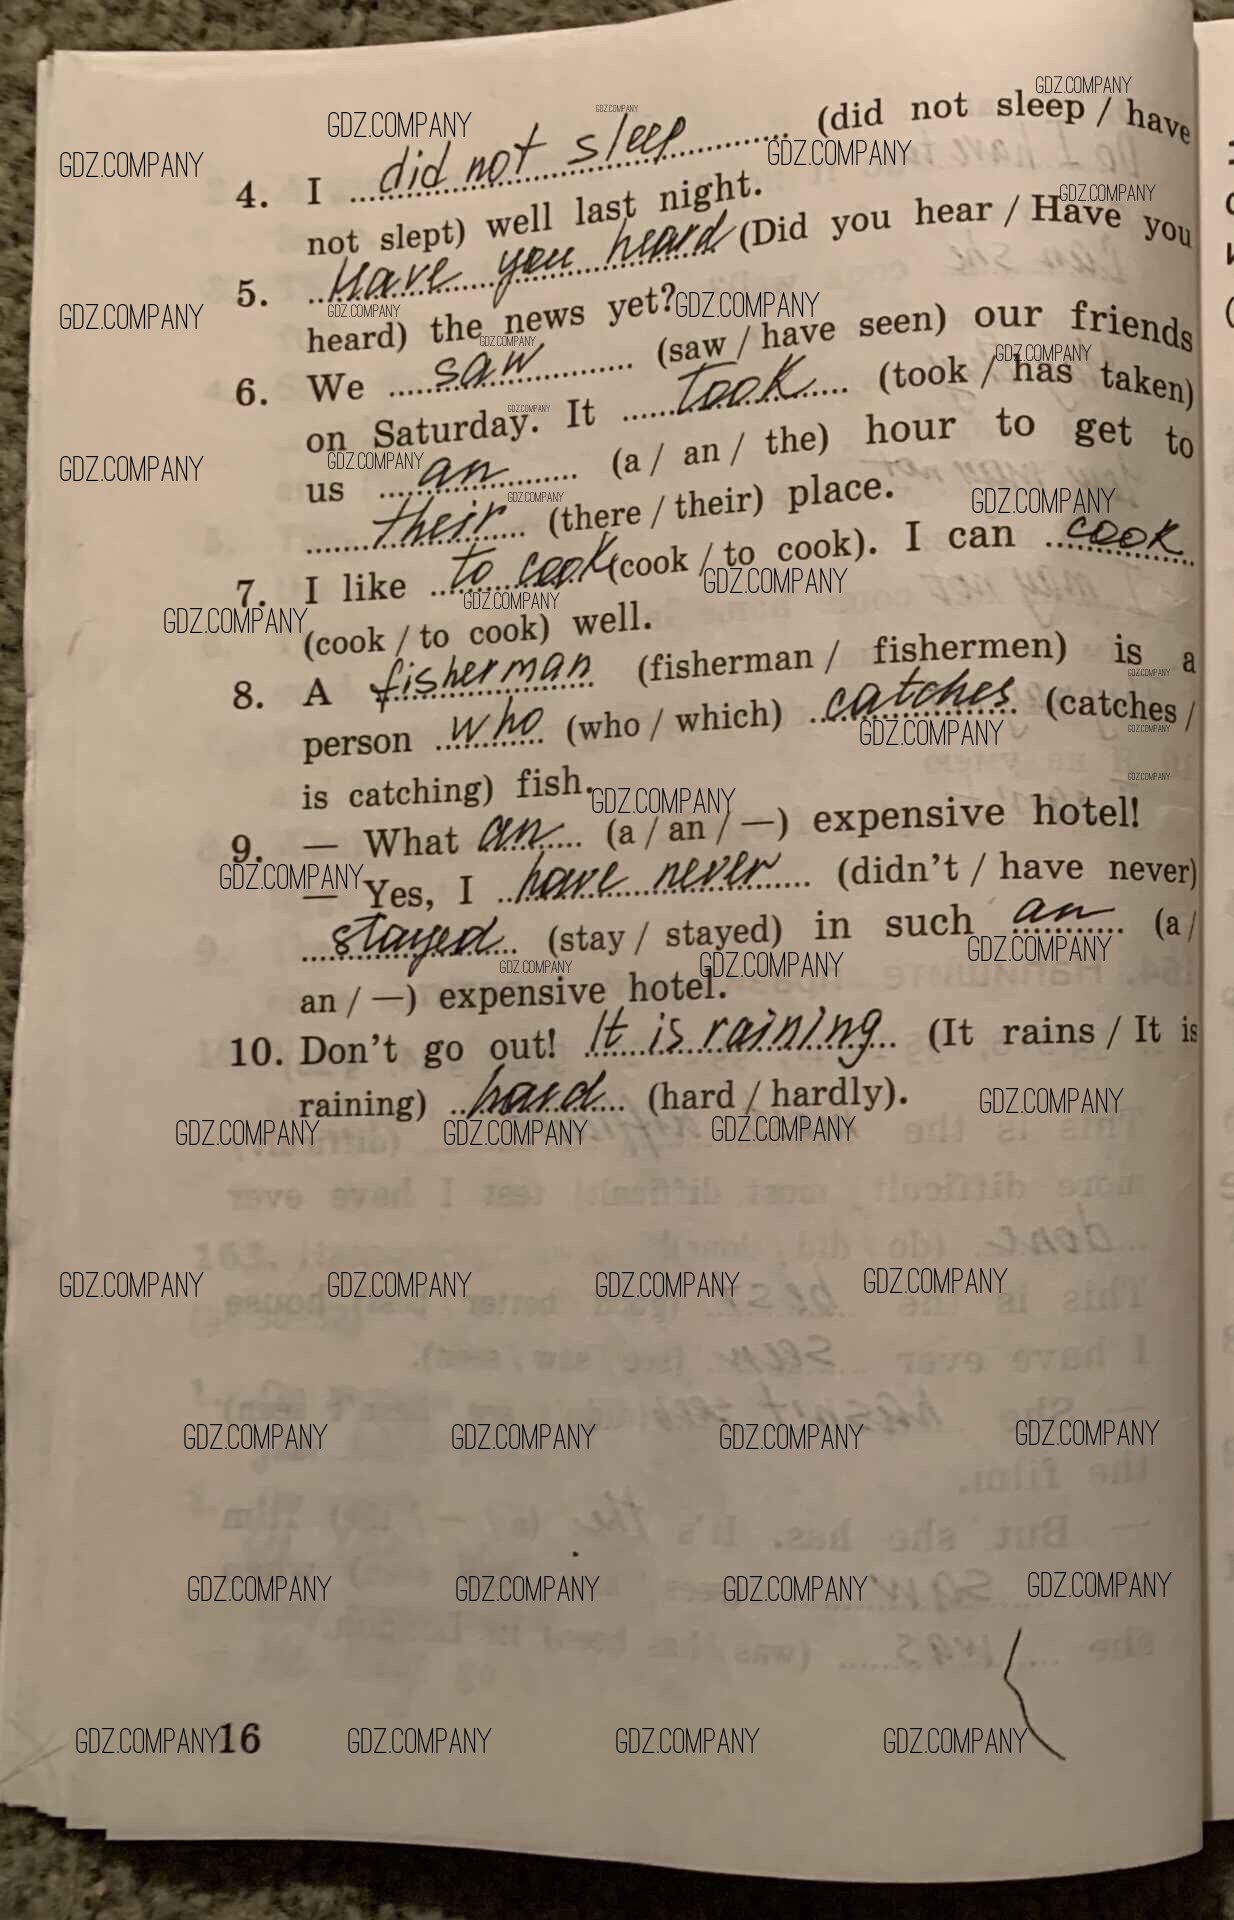 4. I did not sleep (did not sleep / have
not slept) well last night.
5. Have you heard (Did you hear / Have you
heard) the news yet?
6. We saw (saw / have seen) our friends
on Saturday. It took (took / has taken)
us an (a / an / the) hour to get to
their (there / their) place.
7. I like to cook (cook / to cook). I can cook
(cook / to cook) well.
8. A fisherman (fisherman / fishermen) is a
person who (who / which) catches (catches /
is catching) fish.
9. — What an (a / an / —) expensive hotel!
— Yes, I have never (didn't / have never)
stayed (stay / stayed) in such an (a /
an / —) expensive hotel.
10. Don't go out! It is raining (It rains / It is
raining) hard (hard / hardly).
16
GDZ.COMPANY